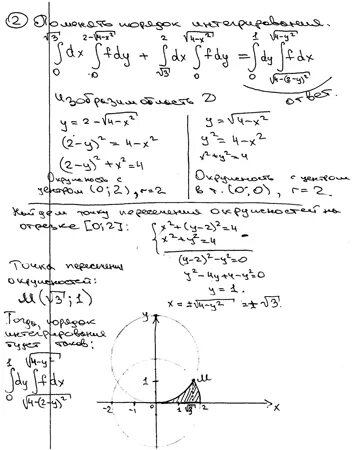 ② Поменять порядок интегрирования.
∫₀^√3 dx ∫₀^(2-√(4-x²)) f dy + ∫_√3^2 dx ∫₀^√(4-x²) f dy = ∫₀^1 dy ∫_√(4-(2-y)²)^√(4-y²) f dx
ответ.
Изобразим область D
y = 2 - √(4-x²)
(2-y)² = 4-x²
(2-y)² + x² = 4
Окружность с
центром (0;2), r=2
y = √(4-x²)
y² = 4-x²
x²+y² = 4
Окружность с центром
в т. (0;0), r = 2.
Найдем точку пересечения окружностей на
отрезке [0;2]:
{ x²+(y-2)² = 4
x²+y² = 4
(y-2)² - y² = 0
y² - 4y + 4 - y² = 0
y = 1.
x = ±√(4-y²) = ±√3.
Точка пересечения
окружностей:
M(√3; 1)
Тогда, порядок
интегрирования
будет таков:
∫₀^1 dy ∫_√(4-(2-y)²)^√(4-y²) f dx
y
1
M
-2 -1 1 √3 2 x